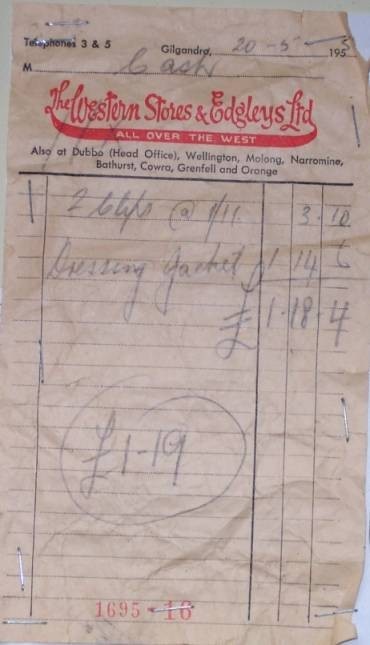 Telephones 3 & 5
Gilgandra, 20-5-1953
M Cash
The Western Stores & Edgleys Ltd
ALL OVER THE WEST
Also at Dubbo (Head Office), Wellington, Molong, Narromine,
Bathurst, Cowra, Grenfell and Orange
2 @ 1/11 3 10
Dressing Jacket 1 14 6
£ 1.18.4
£1-19
1695-16